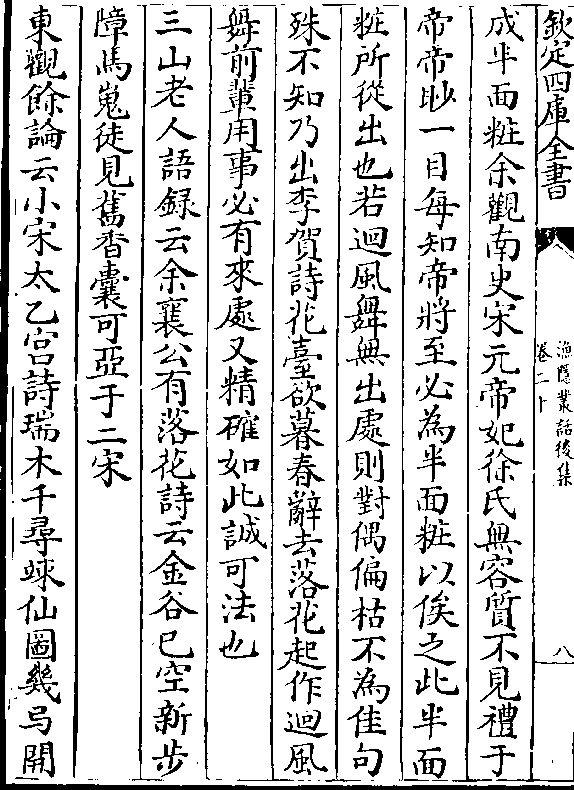 欽定四庫全書
漁隠叢話後集
卷二十
八
成半面粧余觀南史宋元帝妃徐氏無容質不見禮于
帝帝眇一目每知帝將至必為半面粧以俟之此半面
粧所從出也若迴風舞無出處則對偶偏枯不為佳句
殊不知乃出李賀詩花臺欲暮春辭去落花起作迴風
舞前輩用事必有來處又精確如此誠可法也
三山老人語録云余襄公有落花詩云金谷已空新步
障馬嵬徒見舊香囊可亞于二宋
東觀餘論云小宋太乙宫詩瑞木千尋竦仙圖幾弓開